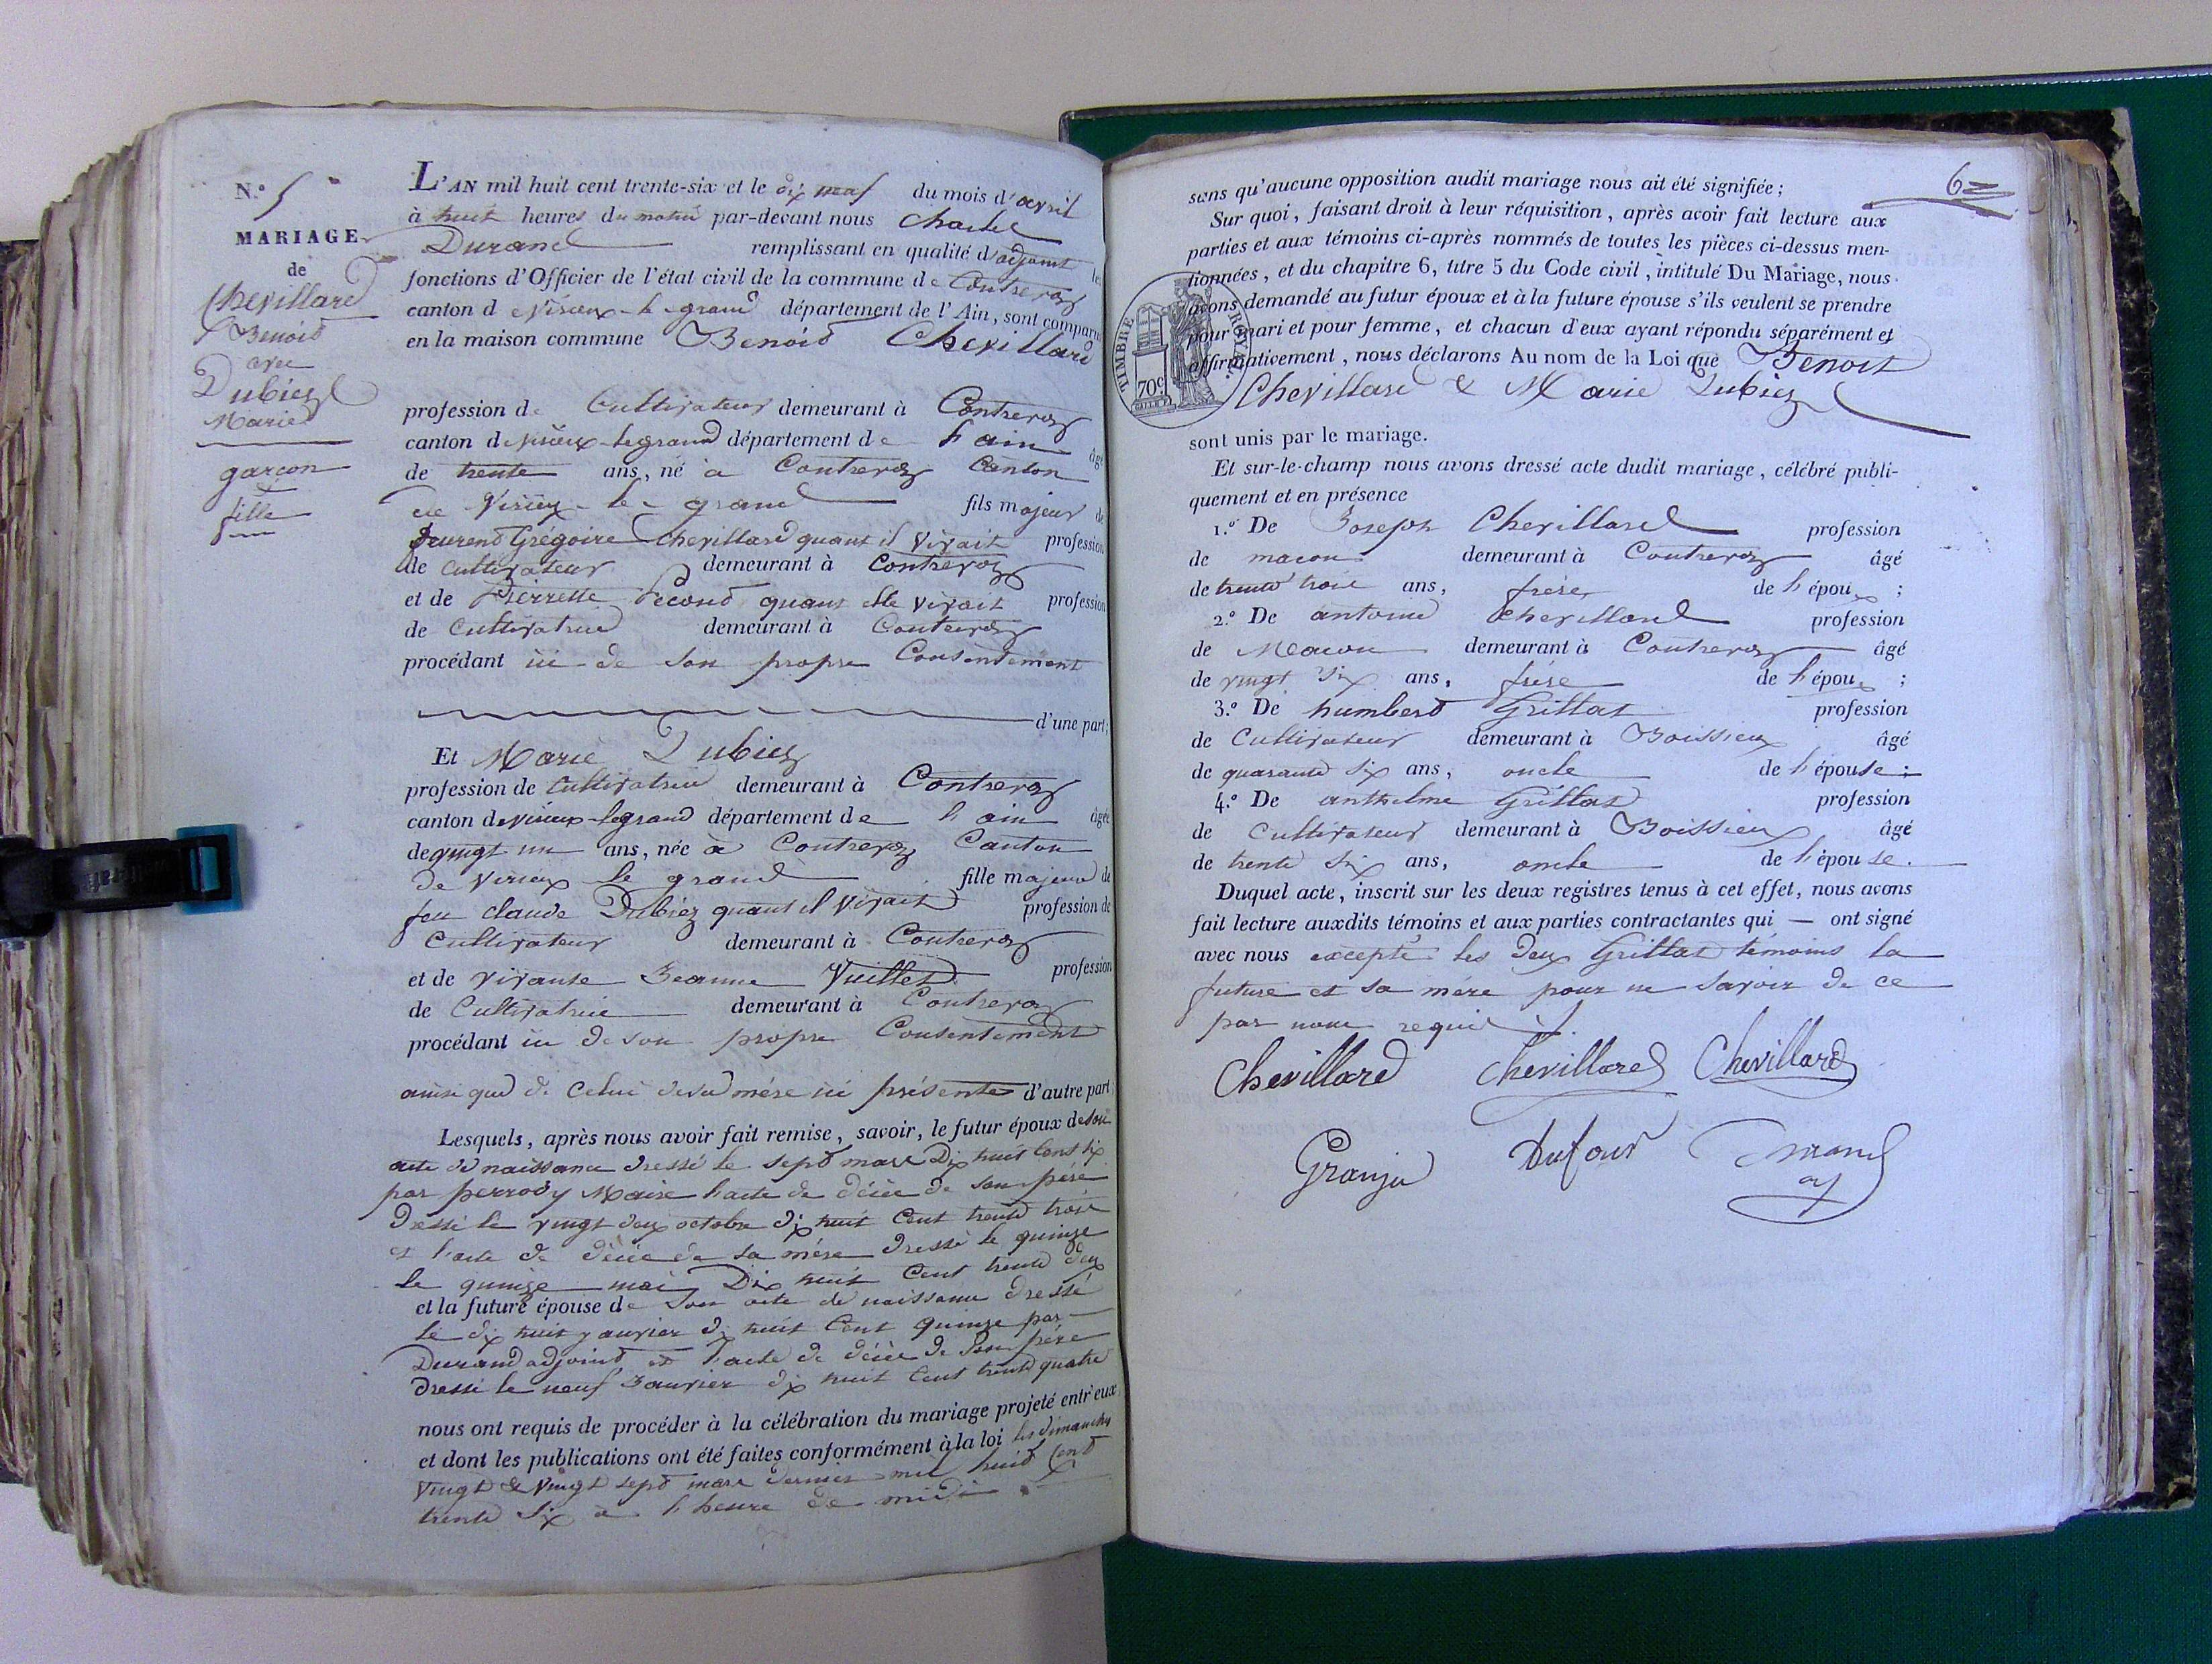 N.º 5
MARIAGE
de
Chevillard
Benoit
avec
Dubiez
Marie
garçon
&
fille
L'AN mil huit cent trente-six et le dix neuf du mois d'avril
à huit heures du matin par-devant nous Charles
Durand remplissant en qualité d'adjoint les
fonctions d'Officier de l'état civil de la commune de Contrevoz
canton de Virieux-le-grand département de l'Ain, sont comparus
en la maison commune Benoit Chevillard
profession de Cultivateur demeurant à Contrevoz
canton de virieux-legrand département de l'ain âgé
de trente ans, né à Contrevoz Canton
de Virieux-le-grand fils majeur de
Grégoire Chevillard quant il vivait profession
de Cultivateur demeurant à Contrevoz
et de Pierrette Second quant elle vivait profession
de Cultivatrice demeurant à Contrevoz
procédant ici de son propre Consentement
d'une part;
Et Marie Dubiez
profession de Cultivatrice demeurant à Contrevoz
canton de virieux-legrand département de l'ain âgée
de vingt un ans, née à Contrevoz Canton
de Virieux le grand fille majeure de
feu claude Dubiez quant il vivait profession de
Cultivateur demeurant à Contrevoz
et de vivante Jeanne Vuillet profession
de Cultivatrice demeurant à Contrevoz
procédant ici de son propre Consentement
ainsi que de Celui de sa mère ici présente d'autre part;
Lesquels, après nous avoir fait remise, savoir, le futur époux de son
acte de naissance dressé le sept mars Dix huit Cent six
par perrody Maire l'acte de décès de son père
dressé le vingt deux octobre dix huit Cent trente trois
et l'acte de décès de sa mère dressé le quinze
le quinze mai Dix huit Cent trente deux
et la future épouse de son acte de naissance dressé
le dix huit janvier dix huit Cent quinze par
Durand adjoint et l'acte de décès de Son père
dressé le neuf Janvier dix huit Cent trente quatre
nous ont requis de procéder à la célébration du mariage projeté entr'eux
et dont les publications ont été faites conformément à la loi les dimanches
vingt & vingt sept mars dernier mil huit Cent
trente six à l'heure de midi
6
sans qu'aucune opposition audit mariage nous ait été signifiée;
Sur quoi, faisant droit à leur réquisition, après avoir fait lecture aux
parties et aux témoins ci-après nommés de toutes les pièces ci-dessus men-
tionnées, et du chapitre 6, titre 5 du Code civil, intitulé Du Mariage, nous
avons demandé au futur époux et à la future épouse s'ils veulent se prendre
pour mari et pour femme, et chacun d'eux ayant répondu séparément et
affirmativement, nous déclarons Au nom de la Loi que Benoit
Chevillard & Marie Dubiez
TIMBRE ROYAL.
70c
sont unis par le mariage.
Et sur-le-champ nous avons dressé acte dudit mariage, célébré publi-
quement et en présence
1.º De Joseph Chevillard profession
de macon demeurant à Contrevoz âgé
de trente trois ans, frère de l'époux ;
2.º De antoine Chevillard profession
de Macon demeurant à Contrevoz âgé
de vingt six ans, frère de l'époux ;
3.º De humbert Grillat profession
de Cultivateur demeurant à Boissieux âgé
de quarante six ans, oncle de l'épouse ;
4.º De anthelme Grillat profession
de Cultivateur demeurant à Boissieux âgé
de trente six ans, oncle de l'épouse.
Duquel acte, inscrit sur les deux registres tenus à cet effet, nous avons
fait lecture auxdits témoins et aux parties contractantes qui — ont signé
avec nous excepté les deux Grillat témoins la
future et sa mere pour ne savoir de ce
par nous requis
Chevillard Chevillard Chevillard
Granju Dufour Durand